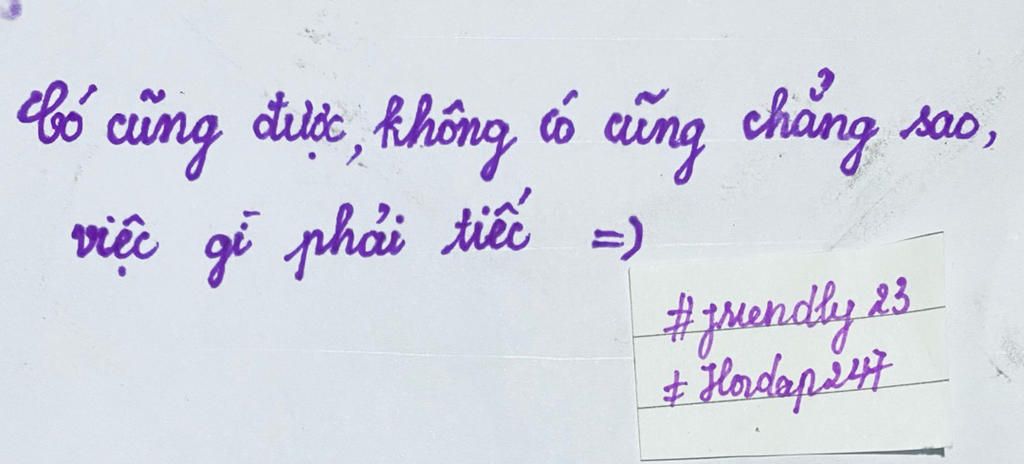 Có cũng được, không có cũng chẳng sao,
việc gì phải tiếc =)
#friendly23
#Hoidap247